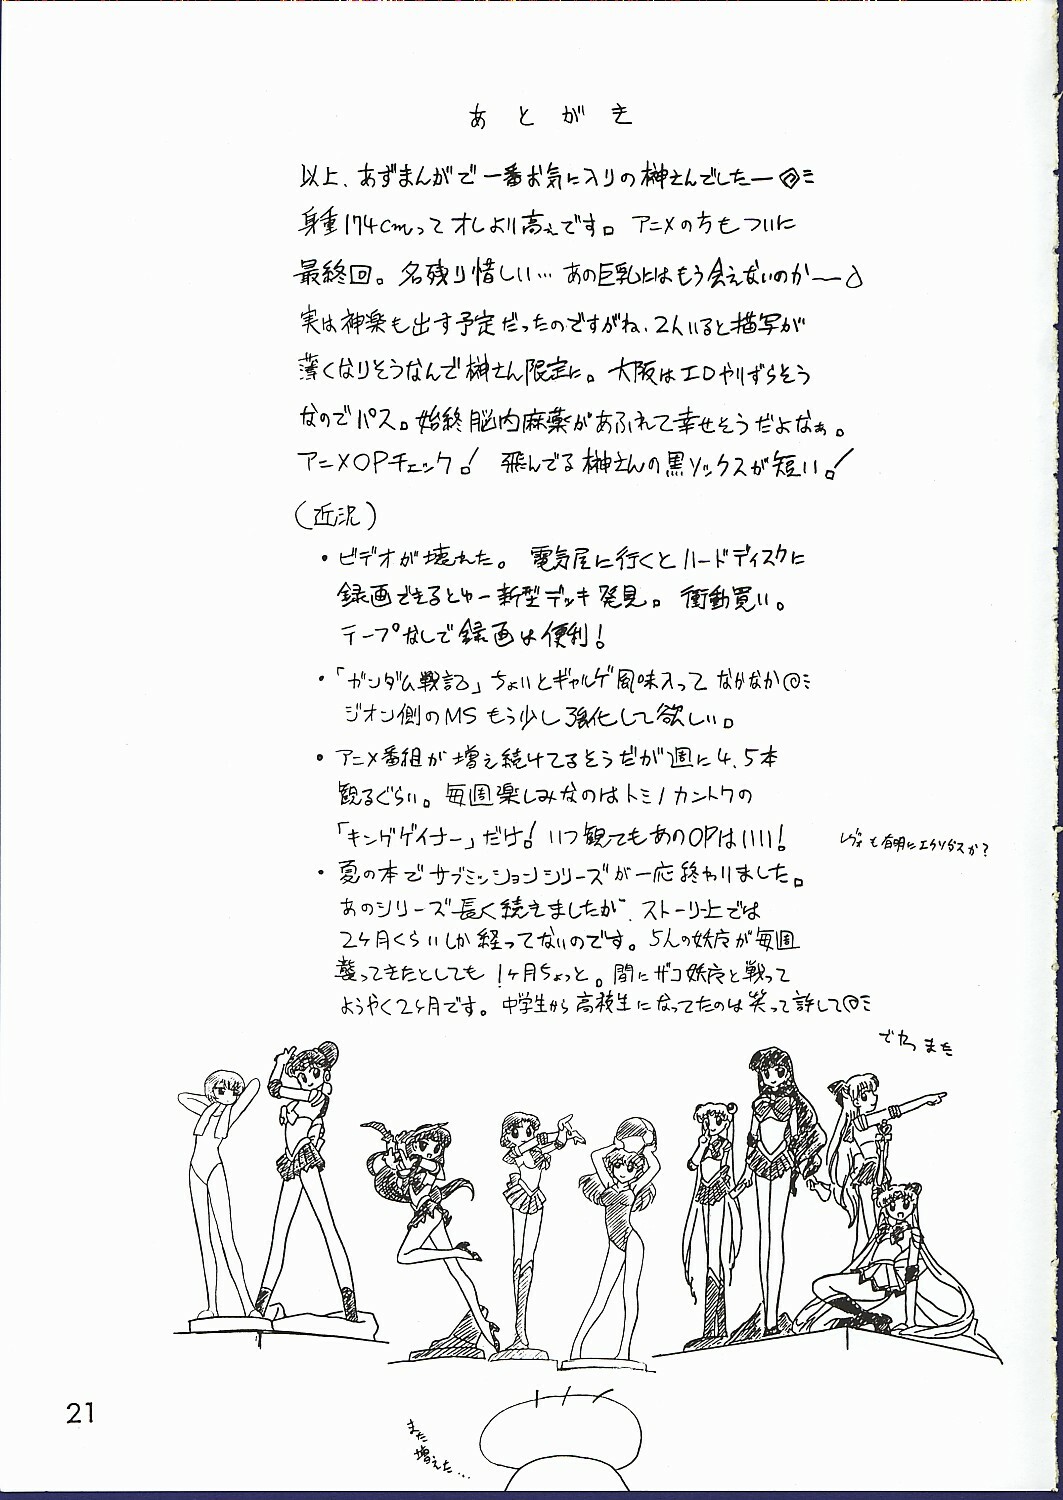 あとがき
以上、あずまんがで一番お気に入りの榊さんでしたー
身重174cmってオレより高ぇです。アニメの方もついに
最終回。名残り惜しい… あの巨乳にはもう会えないのか〜
実は神楽も出す予定だったのですがね、2人いると描写が
薄くなりそうなんで榊さん限定に。大阪はエロやりずらそう
なのでパス。始終脳内麻薬があふれて幸せそうだよなぁ。
アニメOPチェック! 飛んでる榊さんの黒ソックスが短い!
(近況)
・ビデオが壊れた。電気屋に行くとハードディスクに
録画できるとゆー新型デッキ発見。衝動買い。
テープなしで録画は便利!
・「ガンダム戦記」ちょいとギャルゲ風味入ってなかなか
ジオン側のMSもう少し強化して欲しい。
・アニメ番組が増え続けてるそうだが週に4、5本
観るぐらい。毎週楽しみなのはトミノカントクの
「キングゲイナー」だけ! いつ観てもあのOPはいい!
も有明にエクソダスか?
・夏の本でサブミッションシリーズが一応終わりました。
あのシリーズ長く続きましたが、ストーリー上では
2ヶ月くらいしか経ってないのです。5人の妖魔が毎週
襲ってきたとしても1ヶ月ちょっと。間にザコ妖魔と戦って
ようやく2ヶ月です。中学生から高校生になってたのは笑って許して
でわっまた
また
増えた…
21